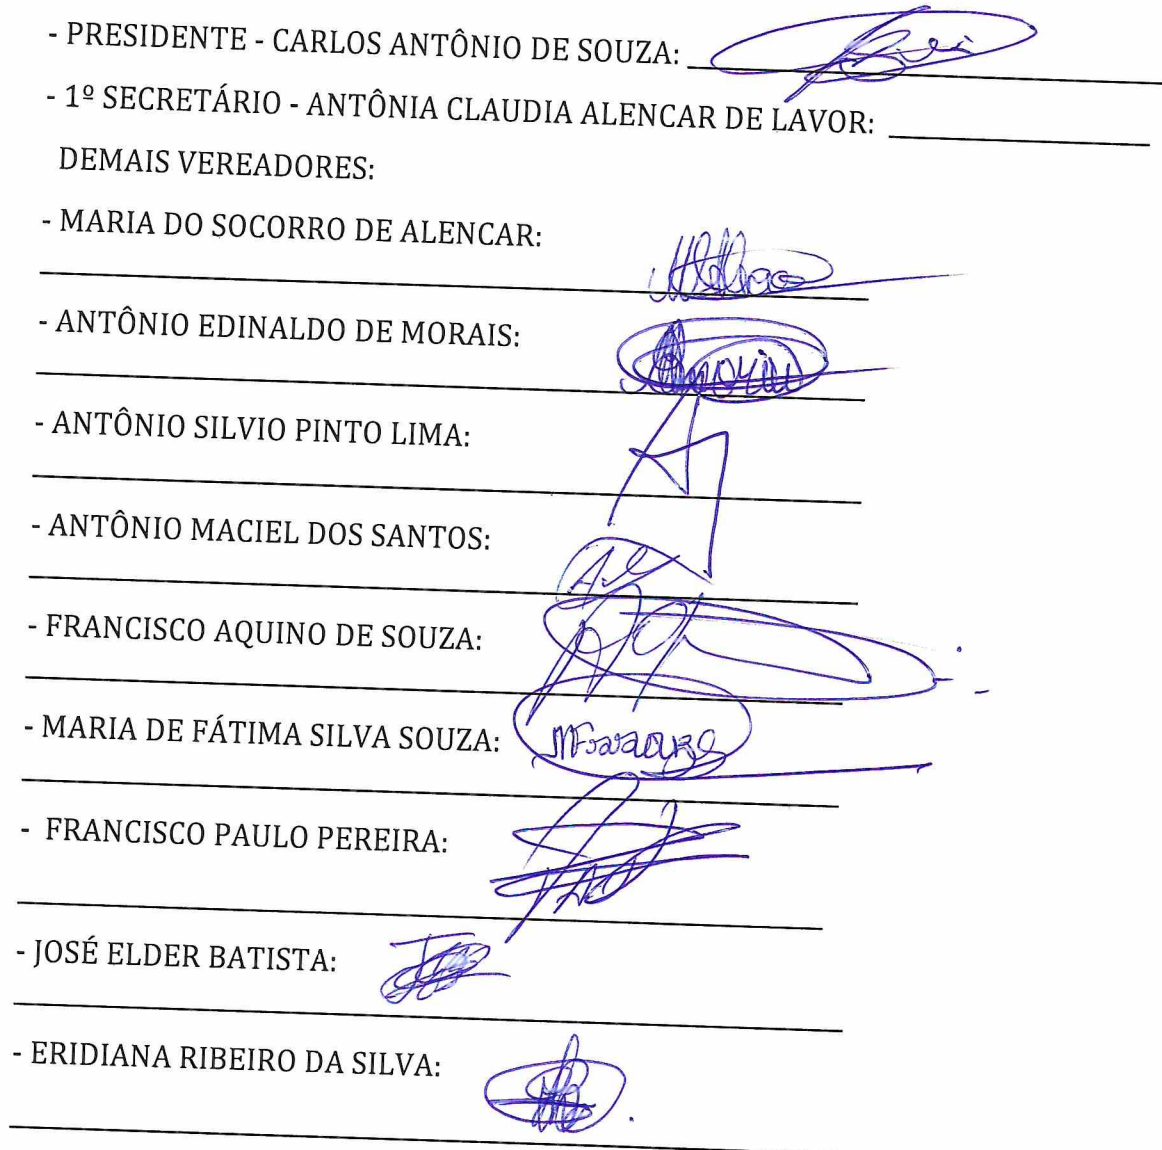 - PRESIDENTE - CARLOS ANTÔNIO DE SOUZA:
- 1º SECRETÁRIO - ANTÔNIA CLAUDIA ALENCAR DE LAVOR:
DEMAIS VEREADORES:
- MARIA DO SOCORRO DE ALENCAR:
- ANTÔNIO EDINALDO DE MORAIS:
- ANTÔNIO SILVIO PINTO LIMA:
- ANTÔNIO MACIEL DOS SANTOS:
- FRANCISCO AQUINO DE SOUZA:
- MARIA DE FÁTIMA SILVA SOUZA:
- FRANCISCO PAULO PEREIRA:
- JOSÉ ELDER BATISTA:
- ERIDIANA RIBEIRO DA SILVA: